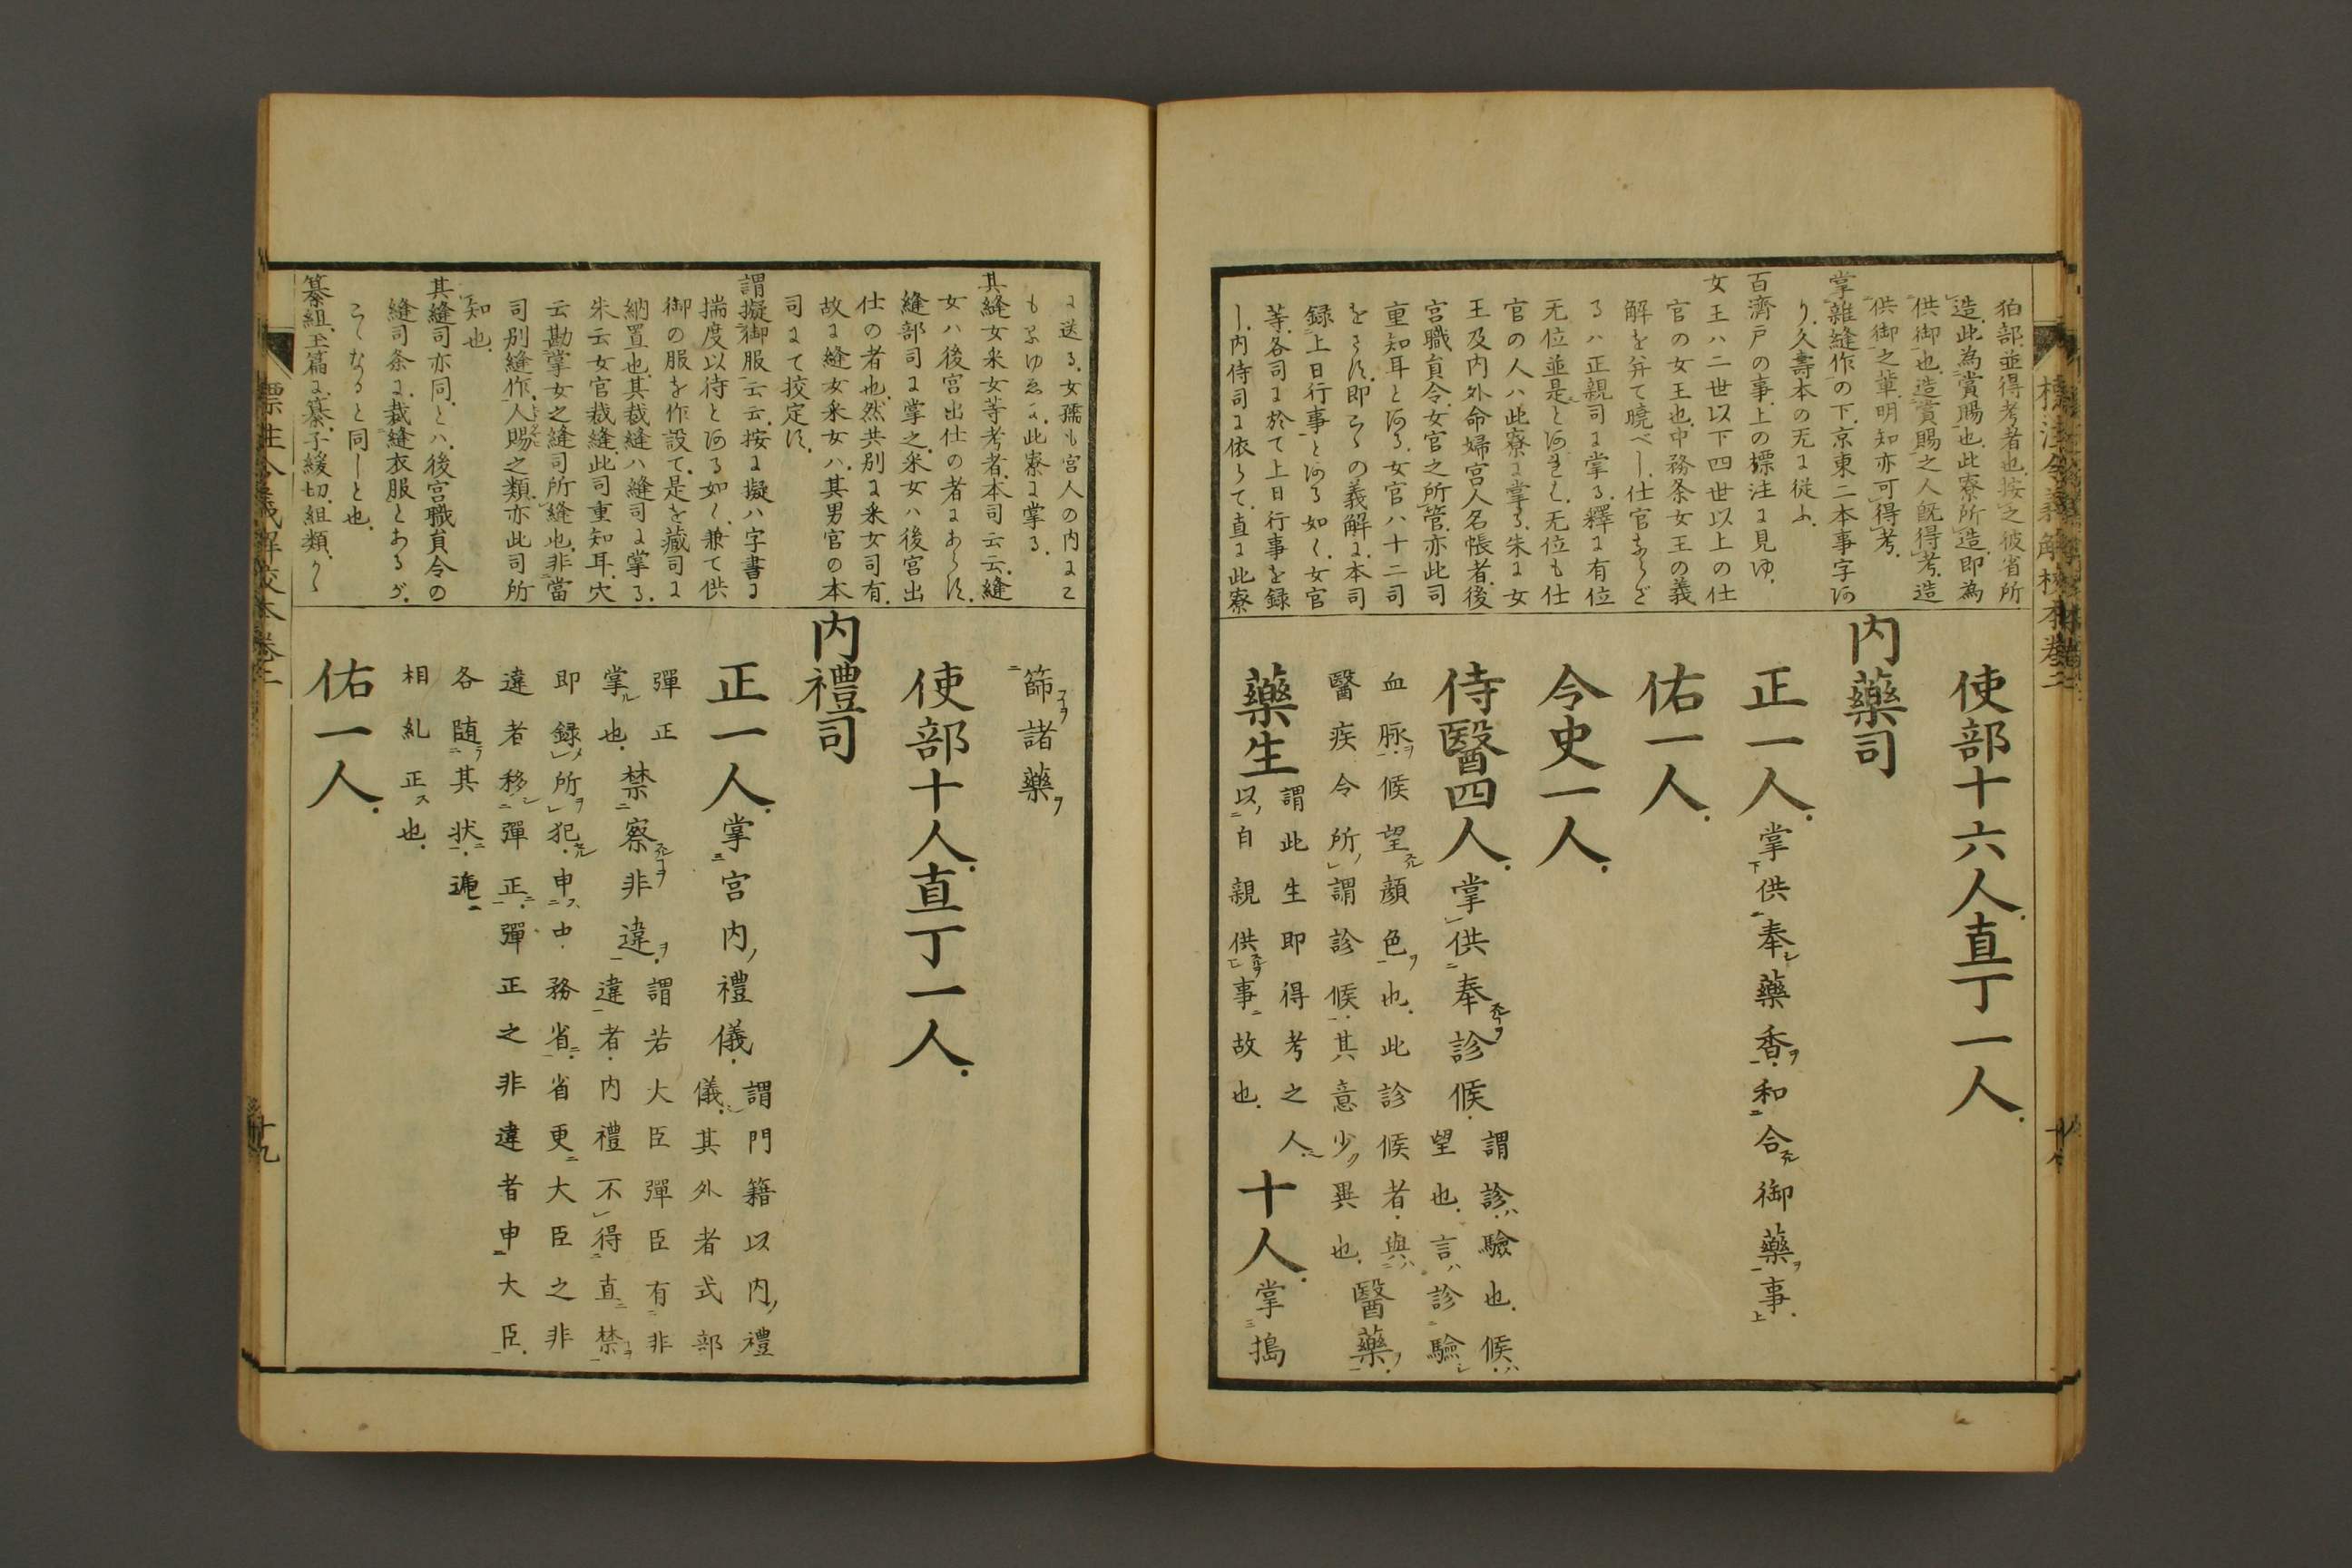 狛部並得考者也按之彼省所
造此為賞賜也此寮所造即為
供御也造賞賜之人既得考造
供御之輩明知亦可得考
掌雜縫作の下京東二本事字
り久壽本の无に従ふ
百濟戸の事上の標注に見ゆ
女王ハ二世以下四世以上の仕
官の女王也中務条女王の義
解を并て曉べし仕官
るハ正親司に掌る釋に有位
无位並是と无位も仕
官の人ハ此寮に掌る朱に女
王及内外命婦宮人名帳者後
宮職員令女官之所管亦此司
重知耳と女官ハ十二司
の義解に本司
録上日行事と如く女官
等各司に於て上日行事を録
し内侍司に依りて直に此寮
使部十六人直丁一人
内藥司
正一人掌供奉藥香和合御藥事
佑一人
令史一人
侍醫四人掌供奉診候謂診驗也候
望也言診驗
血脉候望顔色也此診候者與
醫疾令所謂診候其意少異也醫藥
藥生謂此生即得考之人
以自親供事故也十人掌搗
に送る女孺も宮人の内にて
此寮に掌る
其縫女釆女等考者本司云云縫
女ハ後宮出仕の者に
縫部司に掌之釆女ハ後宮出
仕の者也然共別に釆女司有
故に縫女釆女ハ其男官の本
司にて挍定
謂擬御服云云按に擬ハ字書に
揣度以待と如く兼て供
御の服を作設て是を藏司に
納置也其裁縫ハ縫司に掌る
朱云女官裁縫此司重知耳穴
云勘掌女之縫司所縫也非當
司別縫作人賜之類亦此司所
知也
其縫司亦同とハ後宮職員令の
縫司条に裁縫衣服とあるが
こゝなると同しと也
纂組玉篇に纂子緩切組類
篩諸藥
使部十人直丁一人
内禮司
正一人掌宮内禮儀謂門籍以内禮
儀其外者式部
彈正
掌也禁察非違謂若大臣彈臣有非
違者内禮不得直禁
即録所犯申中務省省更大臣之非
違者移彈正彈正之非違者申大臣
各随其状
相糺正也
佑一人